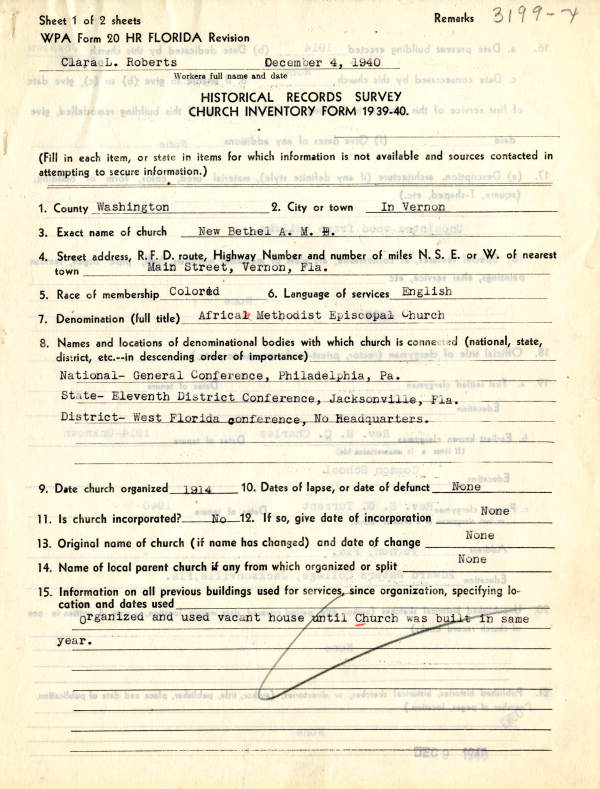 Sheet 1 of 2 sheets
Remarks 3199-4
WPA Form 20 HR FLORIDA Revision
Clara L. Roberts December 4, 1940
Workers full name and date
HISTORICAL RECORDS SURVEY
CHURCH INVENTORY FORM 1939-40.
(Fill in each item, or state in items for which information is not available and sources contacted in
attempting to secure information.)
1. County Washington 2. City or town In Vernon
3. Exact name of church New Bethel A. M. E.
4. Street address, R. F. D. route, Highway Number and number of miles N. S. E. or W. of nearest
town Main Street, Vernon, Fla.
5. Race of membership Colored 6. Language of services English
7. Denomination (full title) African Methodist Episcopal Church
8. Names and locations of denominational bodies with which church is connected (national, state,
district, etc.--in descending order of importance)
National- General Conference, Philadelphia, Pa.
State- Eleventh District Conference, Jacksonville, Fla.
District- West Florida conference, No Headquarters.
9. Date church organized 1914 10. Dates of lapse, or date of defunct None
11. Is church incorporated? No 12. If so, give date of incorporation None
13. Original name of church (if name has changed) and date of change None
14. Name of local parent church if any from which organized or split None
15. Information on all previous buildings used for services, since organization, specifying lo-
cation and dates used
Organized and used vacant house until Church was built in same
year.